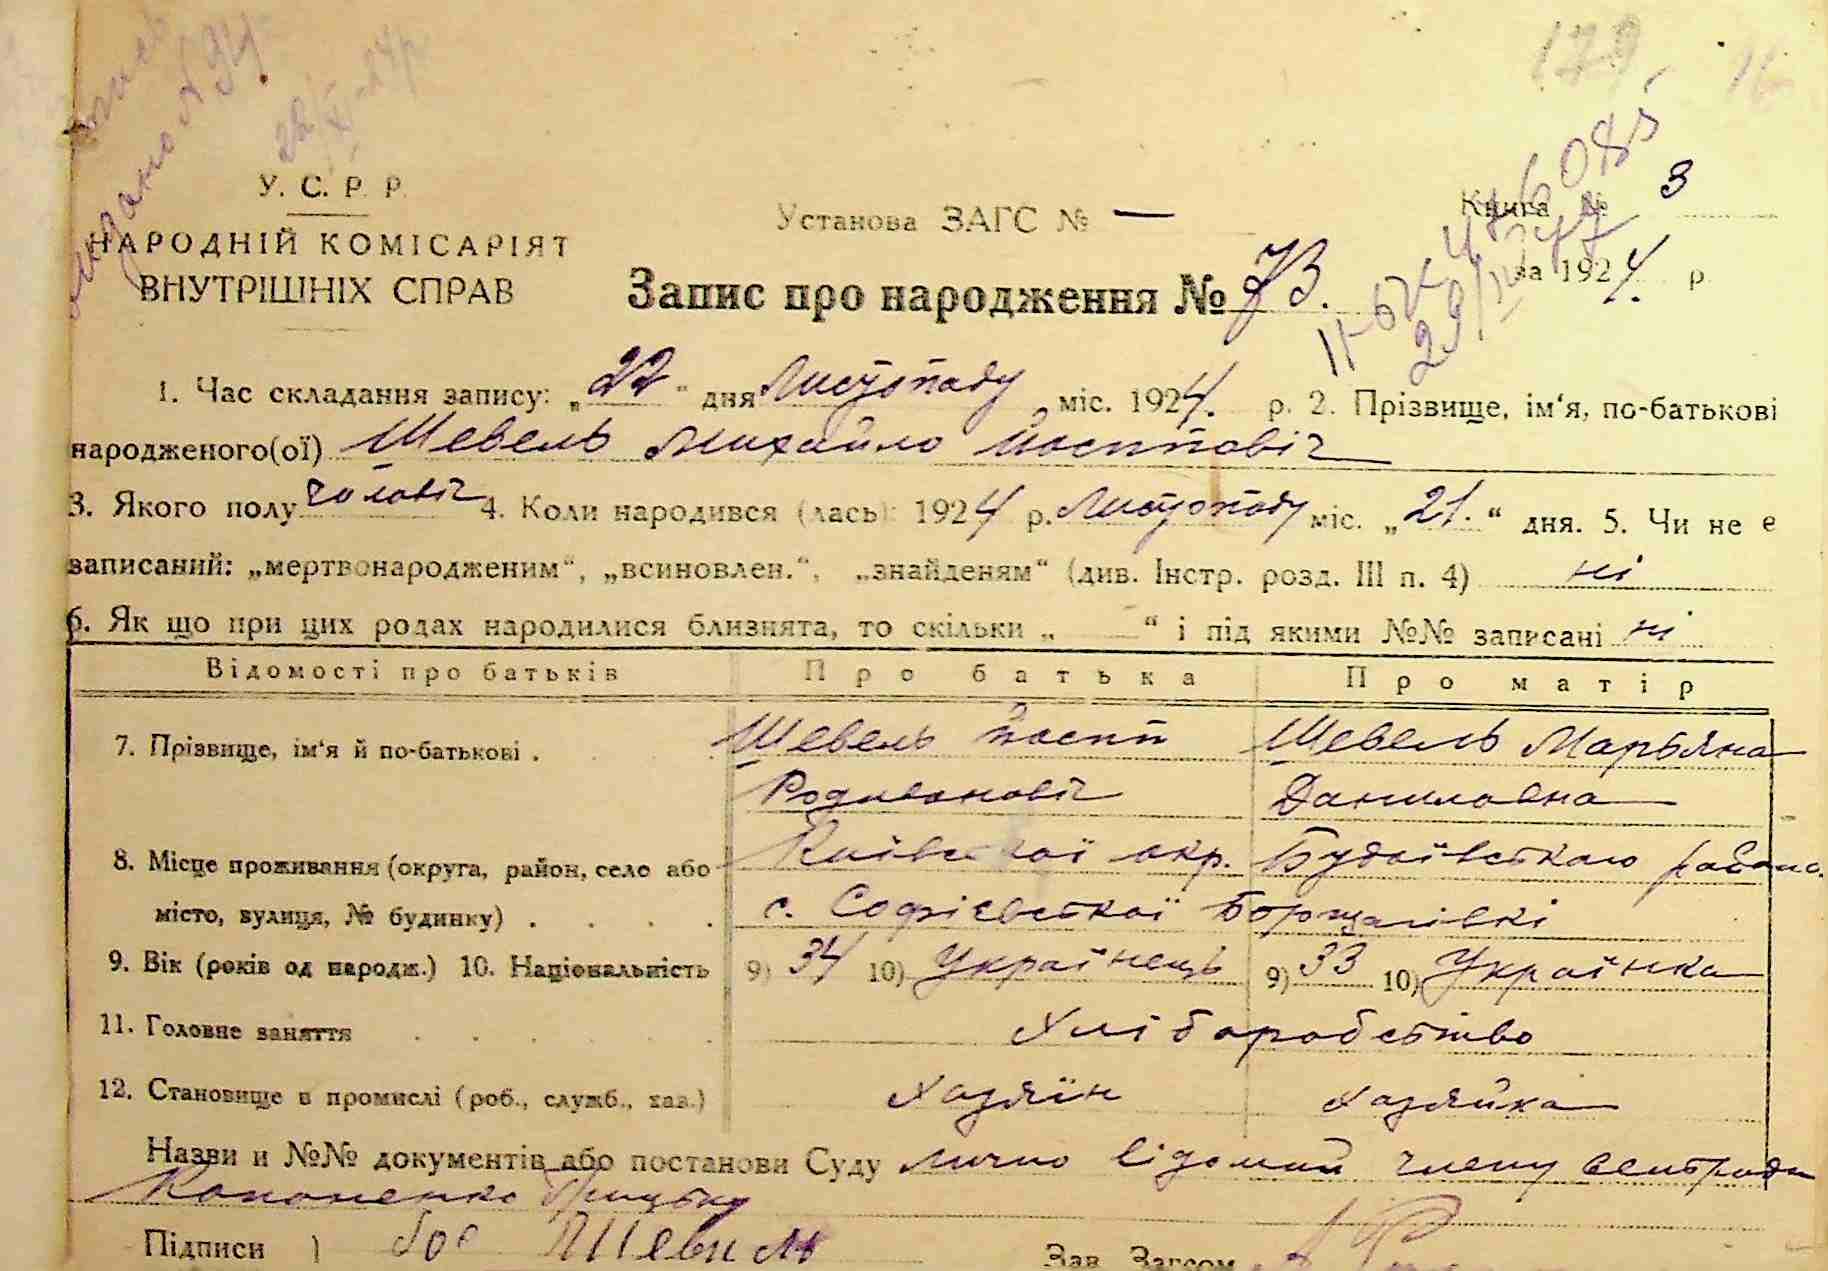 179
У. С. Р. Р.
НАРОДНІЙ КОМІСАРІЯТ
ВНУТРІШНІХ СПРАВ
Установа ЗАГС № —
Книга № 3
за 1924 р.
Запис про народження № 73.
1. Час складання запису: „22" дня Листопаду міс. 1924. р. 2. Прізвище, ім'я, по-батькові
народженого(ої) Шевель Михайло Йосиповіч
3. Якого полу чоловіч 4. Коли народився (лась): 1924 р. Листопаду міс. „21." дня. 5. Чи не є
записаний: „мертвонародженим", „всиновлен.", „знайденям" (див. Інстр. розд. III п. 4) ні
6. Як що при цих родах народилися близнята, то скільки „—" і під якими №№ записані ні
Відомості про батьків Про батька Про матір
7. Прізвище, ім'я й по-батькові . Шевель Йосип Шевель Марьяна
Родивановіч Даниловна
8. Місце проживання (округа, район, село або Київської окр. Будаївського району
місто, вулиця, № будинку) . . . . с. Софієвської Борщагівкі
9. Вік (років од народж.) 10. Національність 9) 34 10) Українець 9) 33 10) Українка
11. Головне заняття . . . . . Хліборобство
12. Становище в промислі (роб., служб., хаз.) Хазяїн Хазяйка
Назви и №№ документів або постанови Суду лично відомий члену сельради
Кононенко Грицьку
Підписи ) Шевиль Зав. Загсом